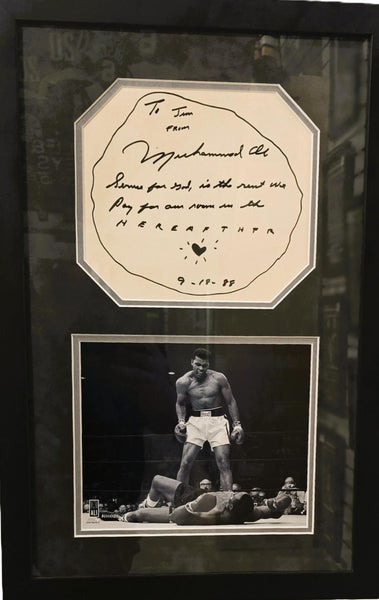 To Jim
FROM
Muhammad Ali
Serve for God, is the rent We
Pay for our room in the
HEREAFTHER
9-19-88
ALI